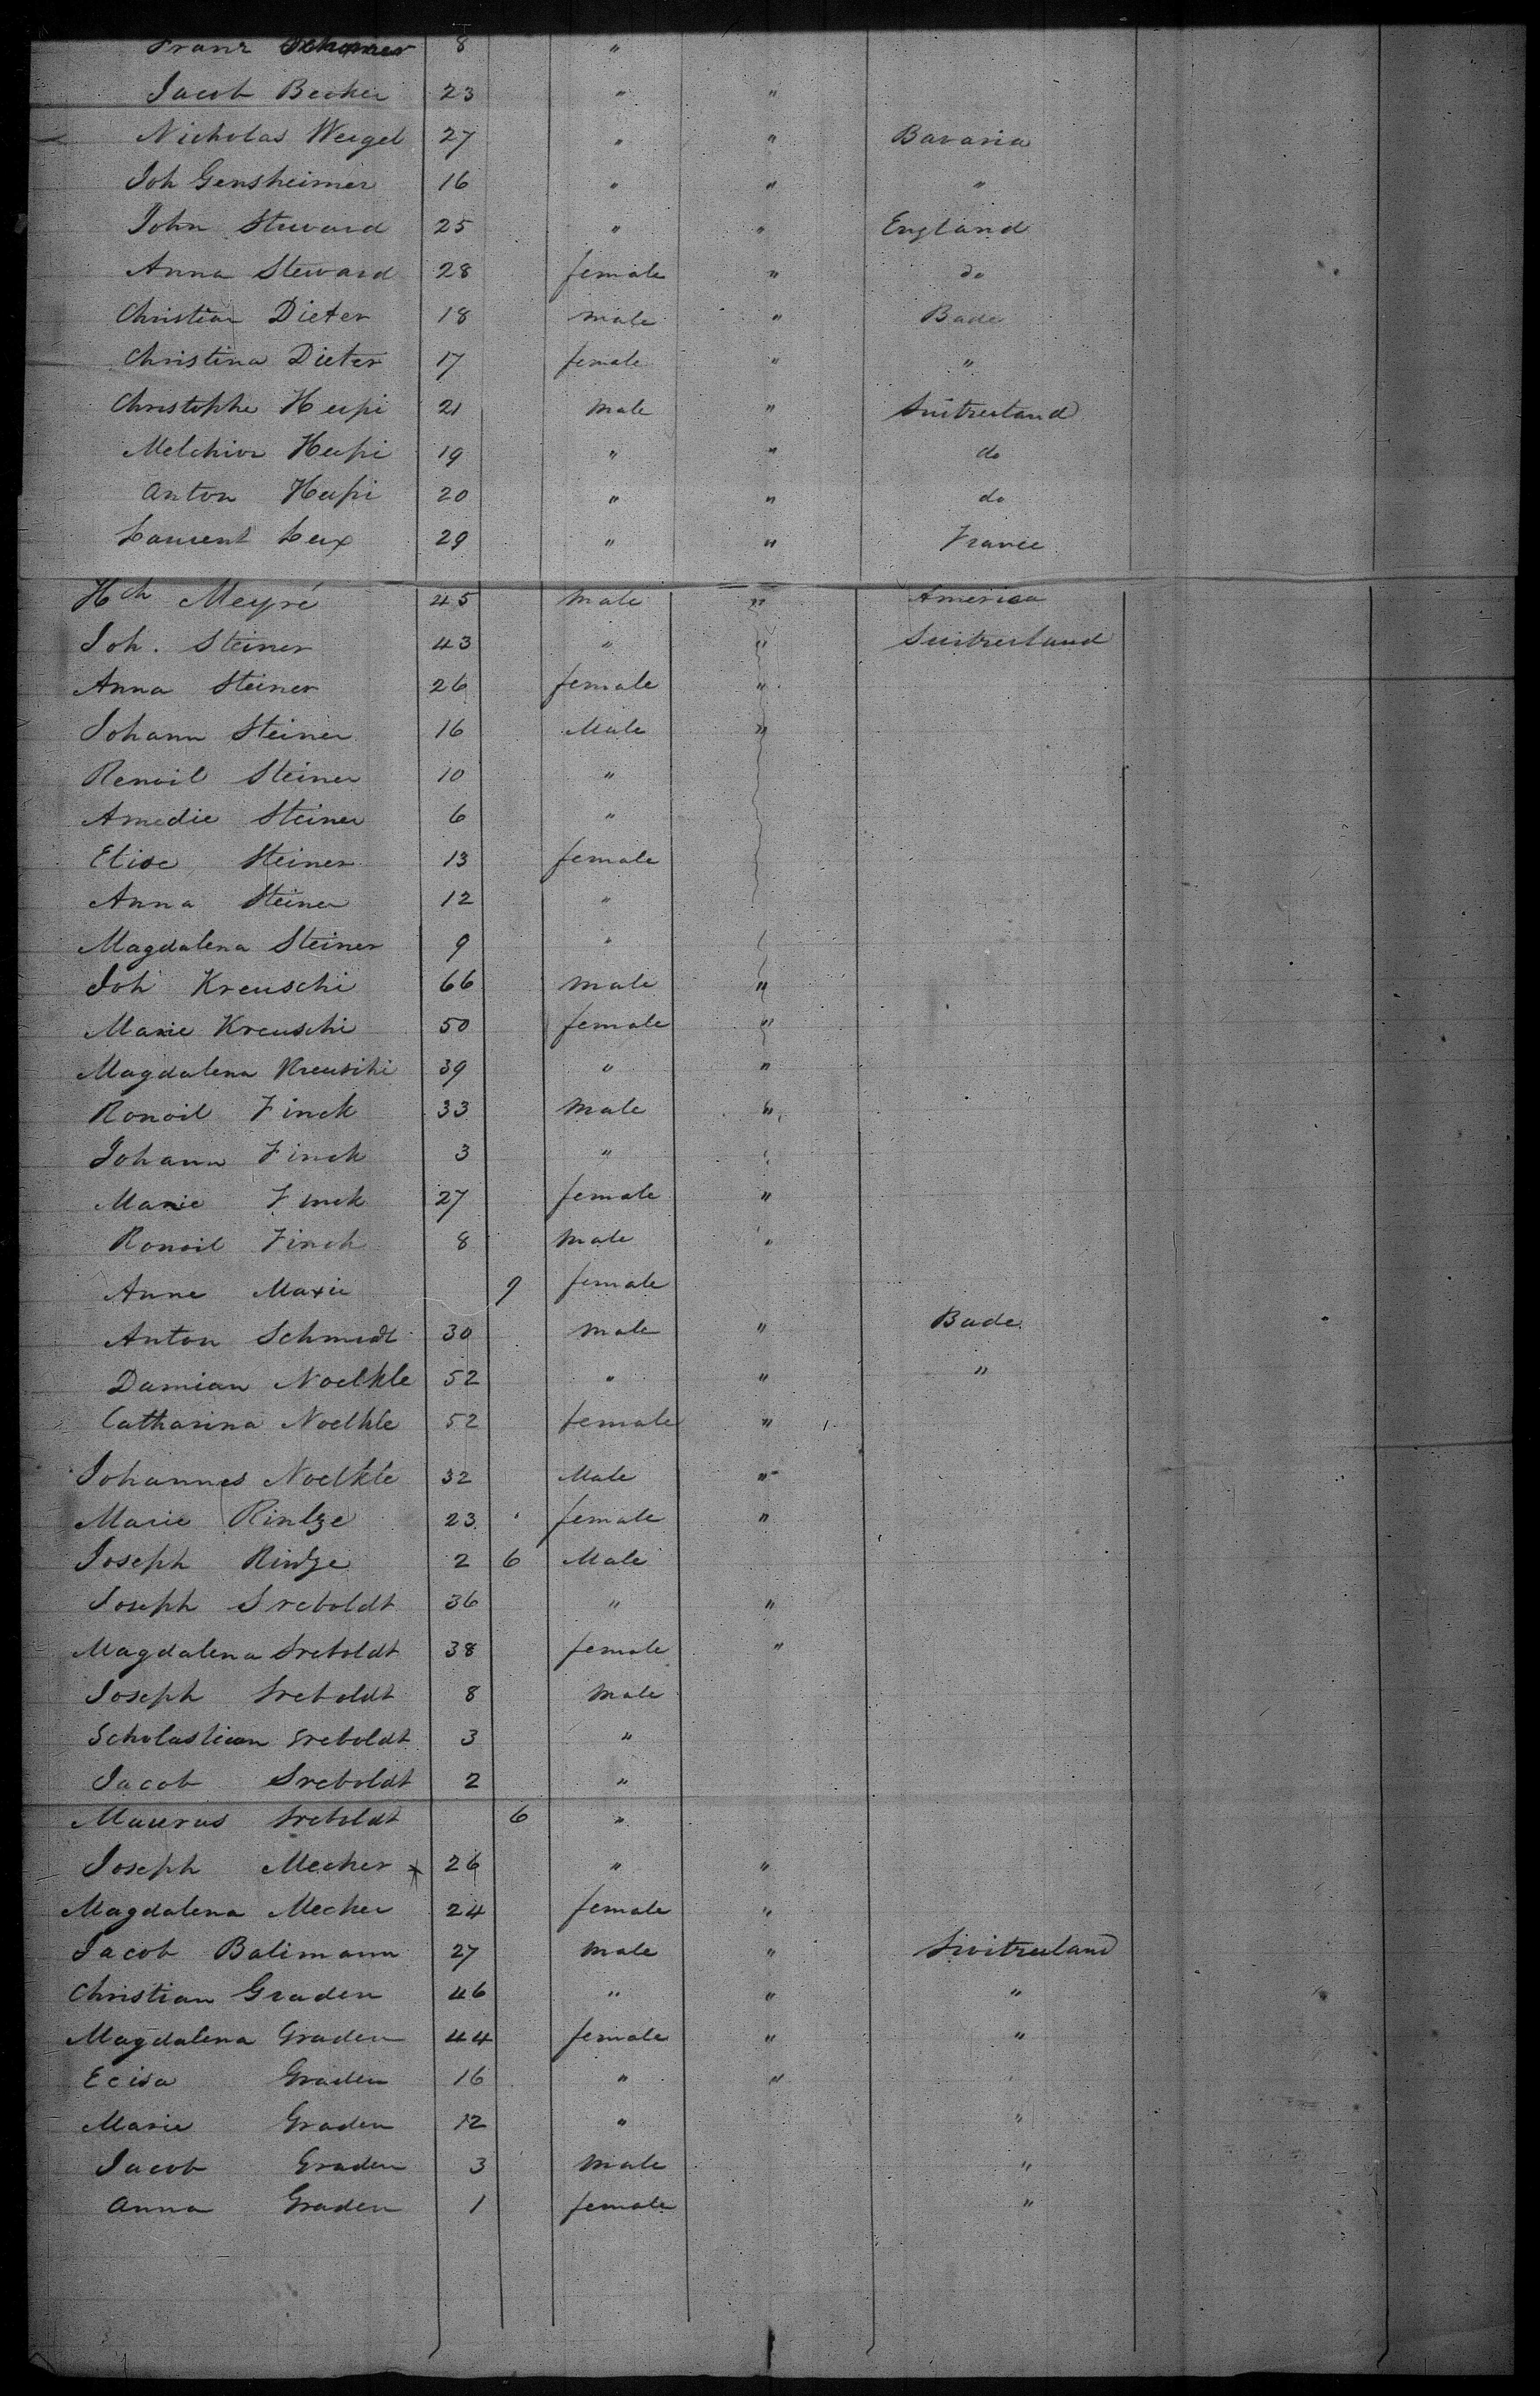 Franz Schoner 8 "
Jacob Becker 23 " "
Nicholas Weigel 27 " " Bavaria
Joh Gensheimer 16 " " "
John Steward 25 " " England
Anna Steward 28 female " do
Christian Dieter 18 male " Bade
Christina Dieter 17 female " "
Christophe Hupi 21 male " Suitzerland
Melchior Hupi 19 " " do
Anton Hupi 20 " " do
Laurent Lux 29 " " France
Hch Meyré 45 male " America
Joh. Steiner 43 " " Suitzerland
Anna Steiner 26 female "
Johann Steiner 16 Male "
Renoil Steiner 10 "
Amedie Steiner 6 "
Elise Steiner 13 female
Anna Steiner 12 "
Magdalena Steiner 9 "
Joh Kreuschi 66 male "
Marie Kreuschi 50 female "
Magdalena Kreuschi 39 " "
Ronoil Finck 33 male "
Johann Finck 3 " "
Marie Finck 27 female "
Ronoil Finck 8 male "
Anne Marie 9 female
Anton Schmidt 30 male " Bade
Damian Noelkle 52 " " "
Catharina Noelkle 52 female "
Johannes Noelkle 32 Male "
Marie Rintze 23 female "
Joseph Rintze 2 6 Male
Joseph Sreboldt 36 " "
Magdalena Sreboldt 38 female "
Joseph Sreboldt 8 male
Scholastican Sreboldt 3 "
Jacob Sreboldt 2 "
Maurus Sreboldt 6 "
Joseph Mecher x 26 " "
Magdalena Mecher 24 female "
Jacob Balimann 27 male " Switzerland
Christian Graden 46 " " "
Magdalena Graden 44 female " "
Ecisa Graden 16 " "
Marie Graden 12 " "
Jacob Graden 3 male "
Anna Graden 1 female "